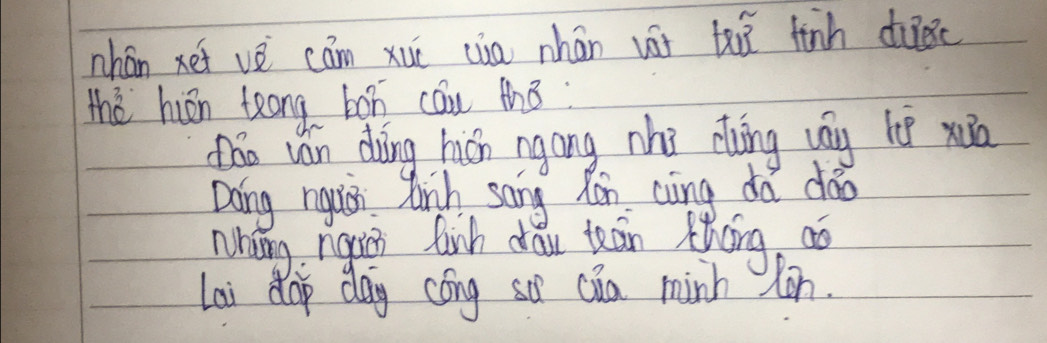 nhân xét về cảm xúc của nhân vật trữ tình được
thể hiện trong bốn câu thơ:
Đảo vẫn đứng hiên ngang như đứng vậy từ xưa
Dáng người lính sáng lên cùng đá đảo
Những người lính đầu trần không áo
Lại đắp dày công sự của mình lên.